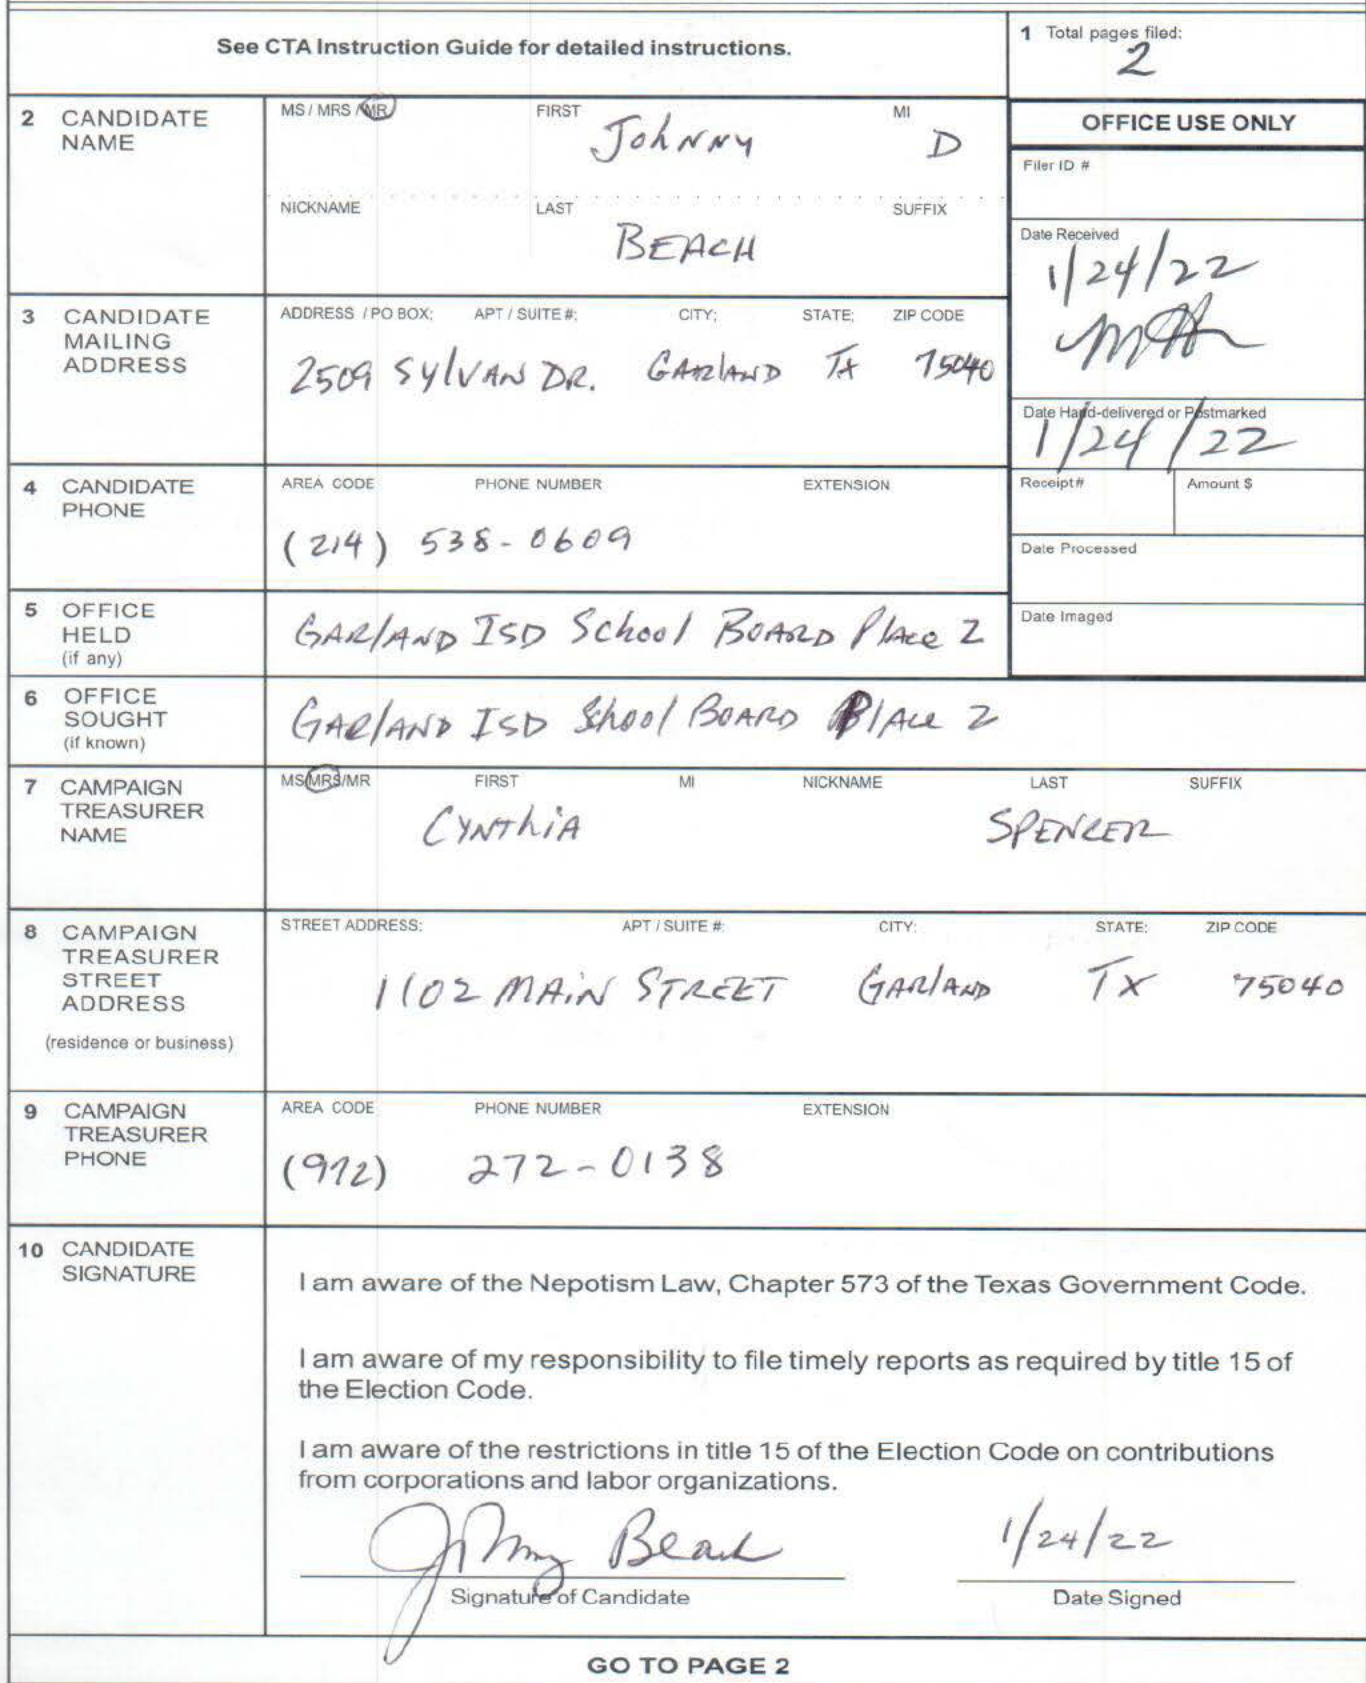 See CTA Instruction Guide for detailed instructions.
1 Total pages filed:
2
2 CANDIDATE NAME
MS / MRS / MR FIRST MI
Johnny D
NICKNAME LAST SUFFIX
BEACH
OFFICE USE ONLY
Filer ID #
Date Received
1/24/22
3 CANDIDATE MAILING ADDRESS
ADDRESS / PO BOX; APT / SUITE #; CITY; STATE; ZIP CODE
2509 SYLVAN DR. GARLAND TX 75040
Date Hand-delivered or Postmarked
1/24/22
4 CANDIDATE PHONE
AREA CODE PHONE NUMBER EXTENSION
(214) 538-0609
Receipt # Amount $
Date Processed
Date Imaged
5 OFFICE HELD (if any)
GARLAND ISD School BOARD Place 2
6 OFFICE SOUGHT (if known)
GARLAND ISD Shool BOARD PlAce 2
7 CAMPAIGN TREASURER NAME
MS/MRS/MR FIRST MI NICKNAME LAST SUFFIX
CYNThiA SPENCER
8 CAMPAIGN TREASURER STREET ADDRESS (residence or business)
STREET ADDRESS; APT / SUITE #; CITY; STATE; ZIP CODE
1102 MAiN STREET GARLAND TX 75040
9 CAMPAIGN TREASURER PHONE
AREA CODE PHONE NUMBER EXTENSION
(972) 272-0138
10 CANDIDATE SIGNATURE
I am aware of the Nepotism Law, Chapter 573 of the Texas Government Code.
I am aware of my responsibility to file timely reports as required by title 15 of
the Election Code.
I am aware of the restrictions in title 15 of the Election Code on contributions
from corporations and labor organizations.
Johnny Beach 1/24/22
Signature of Candidate Date Signed
GO TO PAGE 2